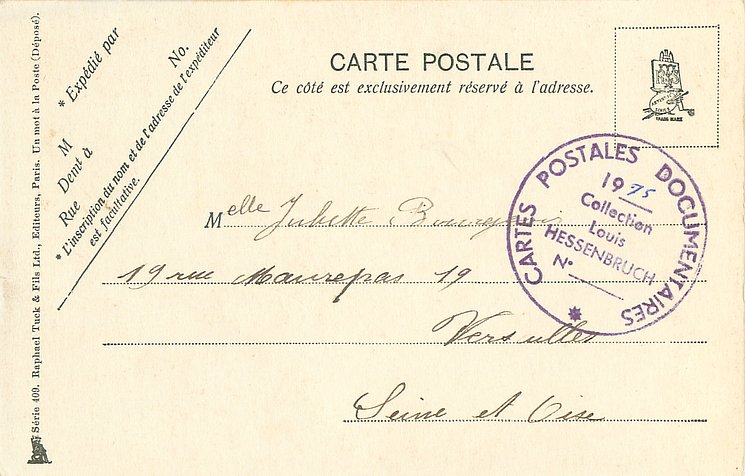 Série 409. Raphael Tuck & Fils Ltd., Editeurs, Paris. Un mot à la Poste (Déposé).
* Expédié par
M No.
Demt à
Rue
* L'inscription du nom et de l'adresse de l'expéditeur
est facultative.
CARTE POSTALE
Ce côté est exclusivement réservé à l'adresse.
TRADE MARK
CARTES POSTALES DOCUMENTAIRES
1975
Collection
Louis
HESSENBRUCH
N°
Melle Juliette
19 rue Maurepas 19
Versailles
Seine et Oise